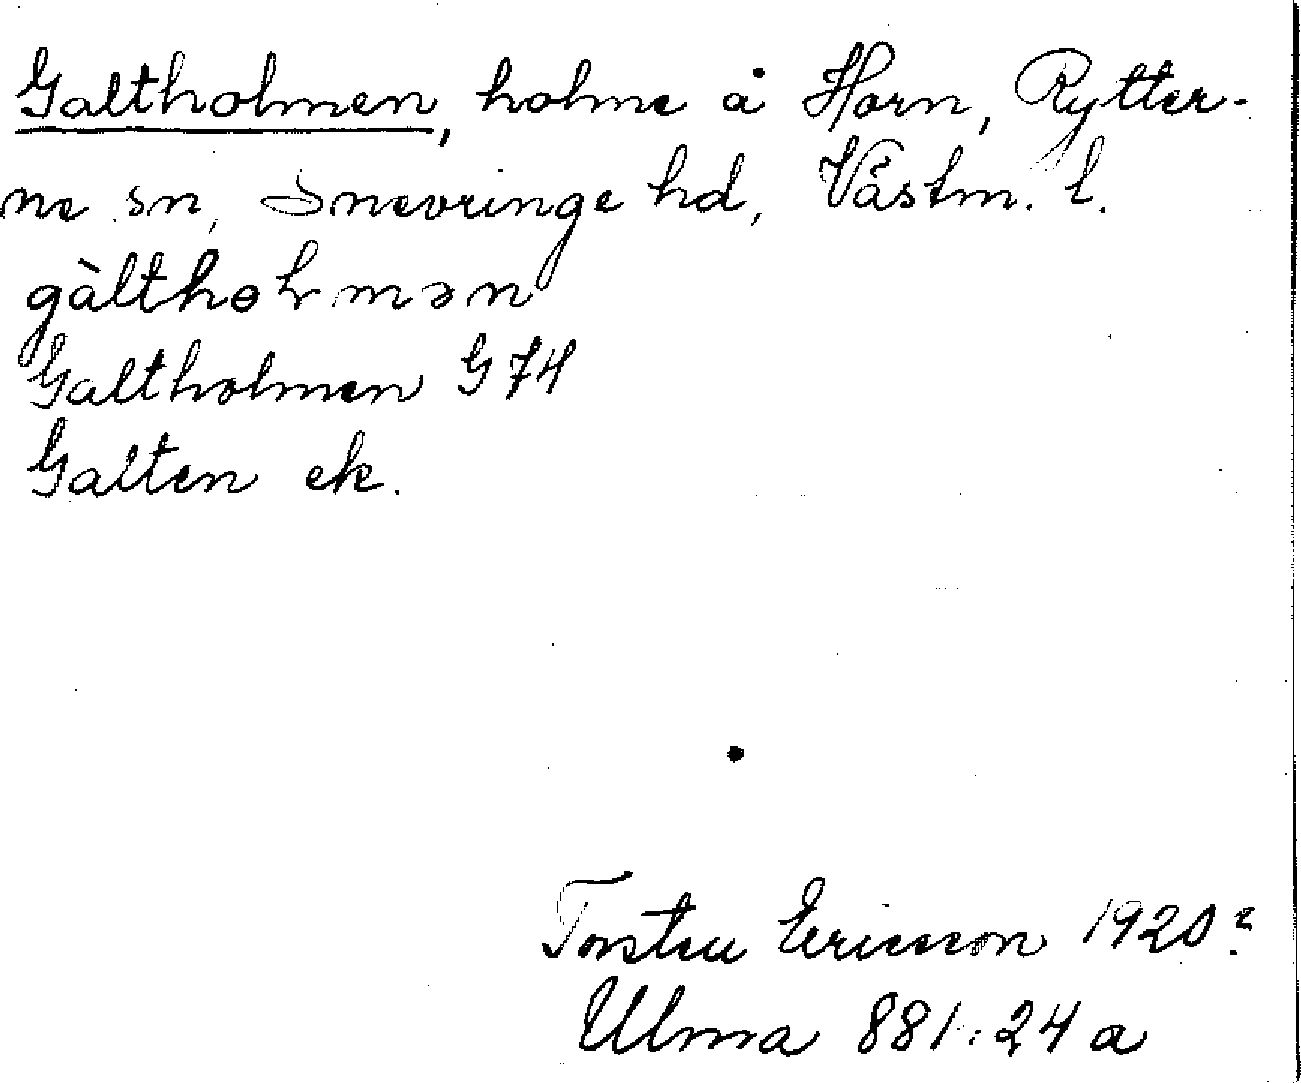 Galtholmen, holme å Horn, Rytter-
ne sn, Snevringe hd, Västm. l.
gàlthɵɫmən
Galtholmen G 74
Galten ek.
Torsten Ericsson 1920?
Ulma 881:24 a